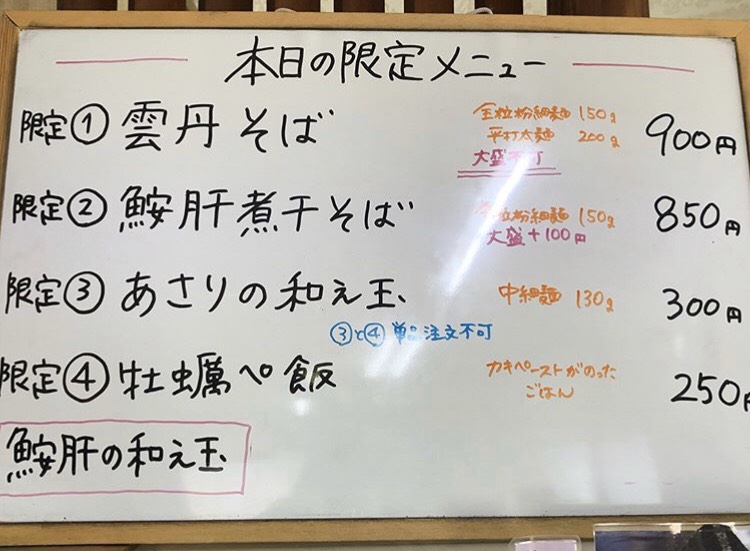 本日の限定メニュー
限定① 雲丹そば 全粒粉細麺 150g 900円
平打太麺 200g
大盛不可
限定② 鮟肝煮干そば 全粒粉細麺 150g 850円
大盛+100円
限定③ あさりの和え玉 中細麺 130g 300円
③と④ 単品注文不可
限定④ 牡蠣ペ飯 カキペーストがのった 250円
ごはん
鮟肝の和え玉